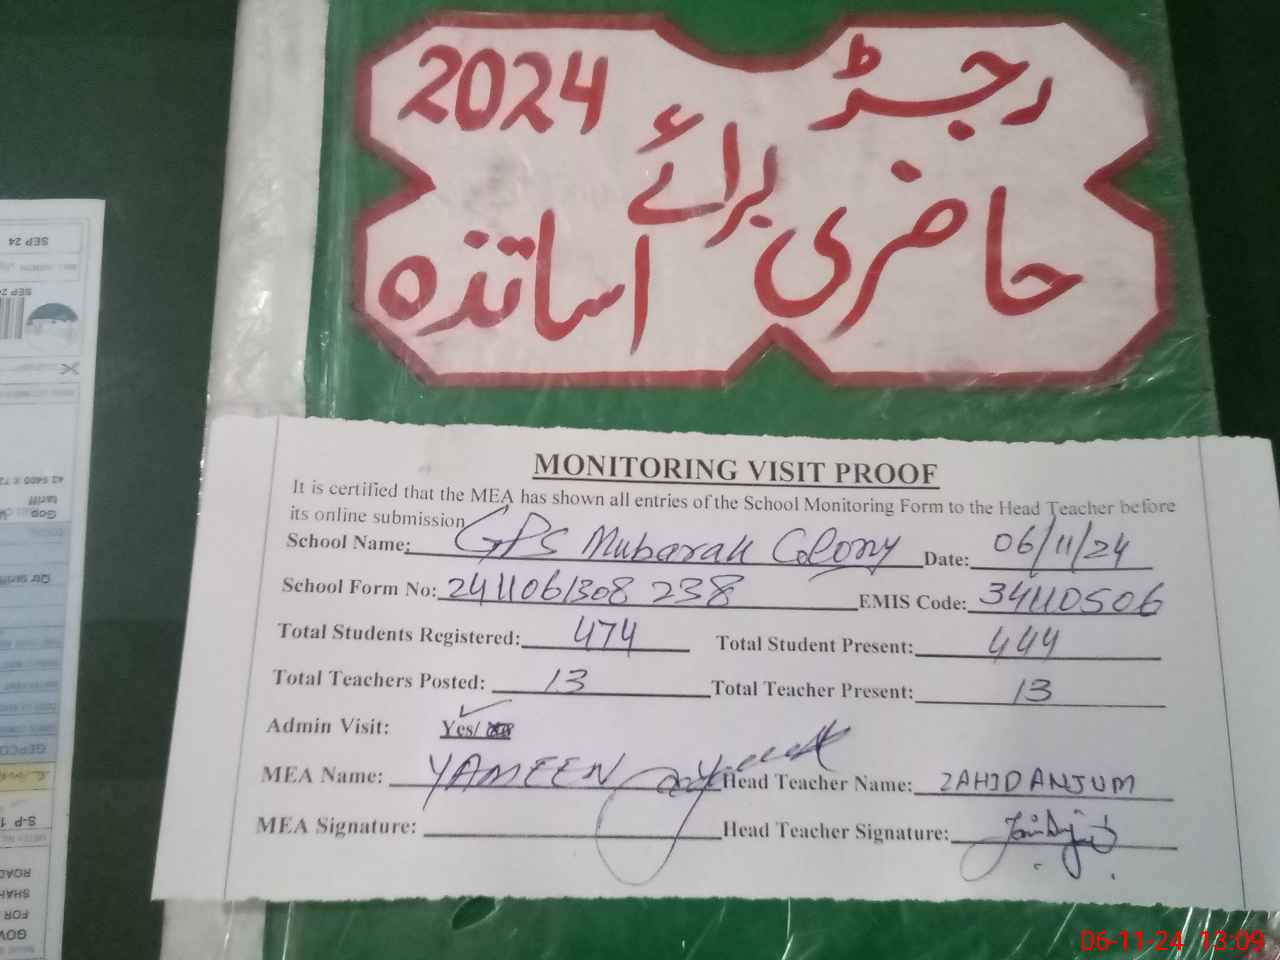 رجسڑ 2024
حاضری برائے
اساتذہ
MONITORING VISIT PROOF
It is certified that the MEA has shown all entries of the School Monitoring Form to the Head Teacher before
its online submission
School Name: GPS Mubarak Colony Date: 06/11/24
School Form No: 2411061308 238 EMIS Code: 34110506
Total Students Registered: 474 Total Student Present: 444
Total Teachers Posted: 13 Total Teacher Present: 13
Admin Visit: Yes/
MEA Name: YAMEEN Head Teacher Name: ZAHID ANJUM
MEA Signature: Head Teacher Signature:
SEP 24
SEP 24
GEPCO
ROAD
SHAH
FOR
GOV
06-11-24 13:09